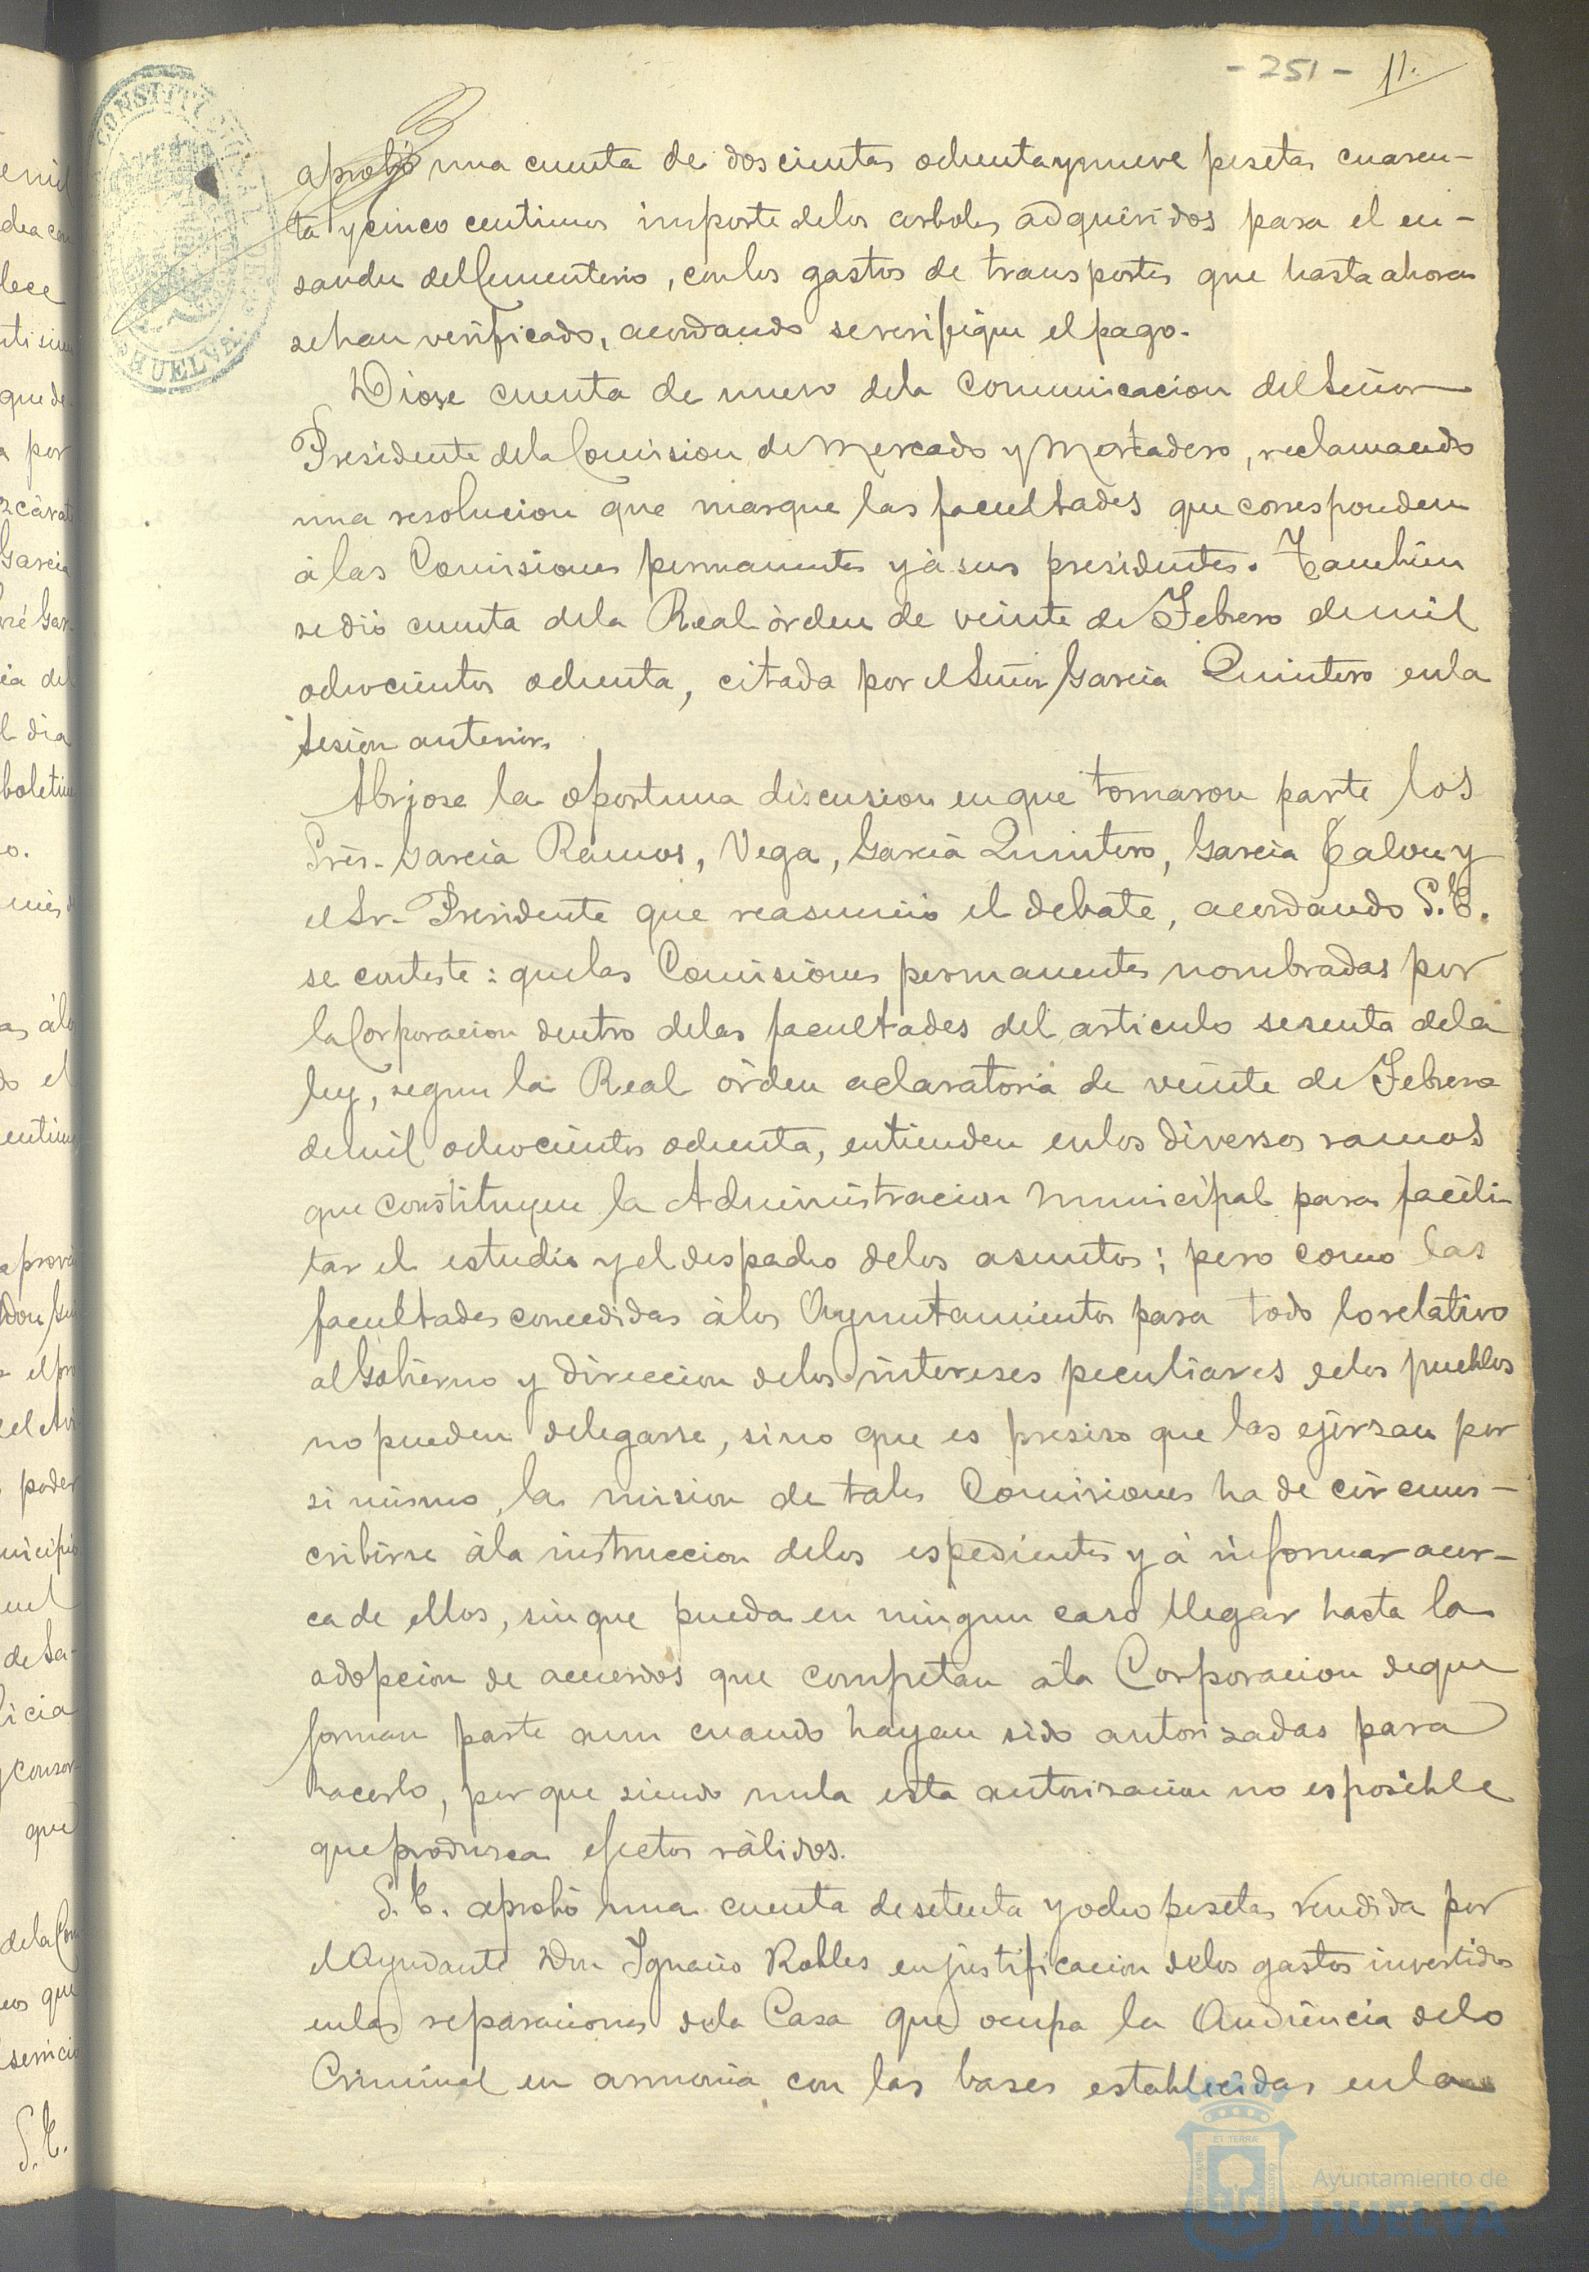 - 251 - 11.
aprobó una cuenta de doscientas ochenta y nueve pesetas cuaren-
ta y cinco centimos importe de los arboles adquiridos para el en-
sanche del Cementerio, con los gastos de transportes que hasta ahora
se han verificado, acordando se verifique el pago.
Diose cuenta de nuevo de la comunicacion del Señor
Presidente de la Comision de Mercado y Matadero, reclamando
una resolucion que marque las facultades que corresponden
á las Comisiones permanentes y á sus presidentes. Tambien
se dió cuenta de la Real órden de veinte de Febrero de mil
ochocientos ochenta, citada por el Señor Garcia Quintero en la
sesion anterior.
Abriose la oportuna discusion en que tomaron parte los
Sres. Garcia Ramos, Vega, Garcia Quintero, Garcia Calvo y
el Sr. Presidente que reasumió el debate, acordando S. E.
se conteste: que las Comisiones permanentes nombradas por
la Corporacion dentro de las facultades del articulo sesenta de la
ley, segun la Real órden aclaratoria de veinte de Febrero
de mil ochocientos ochenta, entienden en los diversos ramos
que constituyen la Administracion Municipal para facili-
tar el estudio y el despacho de los asuntos; pero como las
facultades concedidas á los Ayuntamientos para todo lo relativo
al Gobierno y direccion de los intereses peculiares de los pueblos
no pueden delegarse, sino que es presiso que las ejersan por
si mismo, la mision de tales Comisiones ha de circuns-
cribirse á la instruccion de los espedientes y á informar acer-
ca de ellos, sin que pueda en ningun caso llegar hasta la
adopcion de acuerdos que competan á la Corporacion de que
forman parte aun cuando hayan sido autorizadas para
hacerlo, por que siendo nula esta autorizacion no es posible
que produzca efectos válidos.
S. E. aprobó una cuenta de setenta y ocho pesetas rendida por
el Ayudante Don Ignacio Robles en justificacion de los gastos invertidos
en las reparaciones de la Casa que ocupa la Audiencia de lo
Criminal en armonia con las bases establecidas en la
Ayuntamiento de
HUELVA